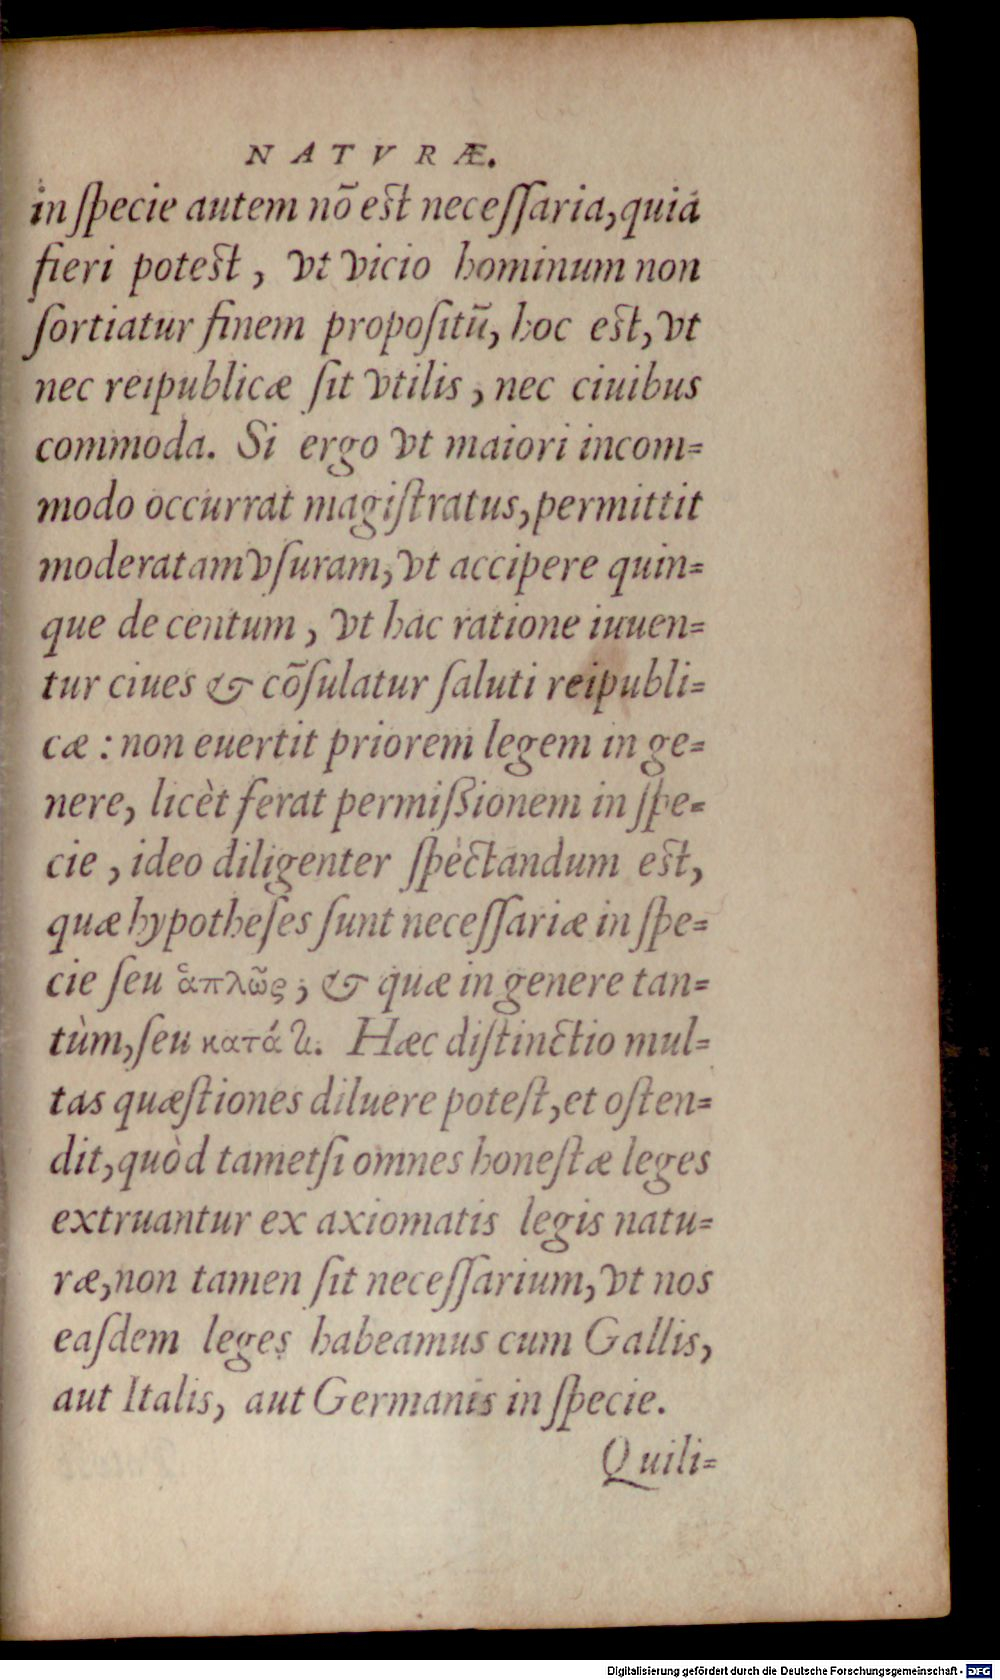 NATVRÆ.
in ſpecie autem nõ est neceſſaria, quia
fieri potest, vt vicio hominum non
ſortiatur finem propoſitũ, hoc est, vt
nec reipublicæ ſit vtilis, nec ciuibus
commoda. Si ergo vt maiori incom=
modo occurrat magiſtratus, permittit
moderatam vſuram, vt accipere quin=
que de centum, vt hac ratione iuuen=
tur ciues & cõſulatur ſaluti reipubli=
cæ: non euertit priorem legem in ge=
nere, licèt ferat permiſsionem in ſpe=
cie, ideo diligenter ſpectandum est,
quæ hypotheſes ſunt neceſſariæ in ſpe=
cie ſeu ἁπλῶς; & quæ in genere tan=
tùm, ſeu κατά τι. Hæc diſtinctio mul=
tas quæſtiones diluere poteſt, et oſten=
dit, quòd tametſi omnes honeſtæ leges
extruantur ex axiomatis legis natu=
ræ, non tamen ſit neceſſarium, vt nos
eaſdem leges habeamus cum Gallis,
aut Italis, aut Germanis in ſpecie.
Quili=
Digitalisierung gefördert durch die Deutsche Forschungsgemeinschaft - DFG